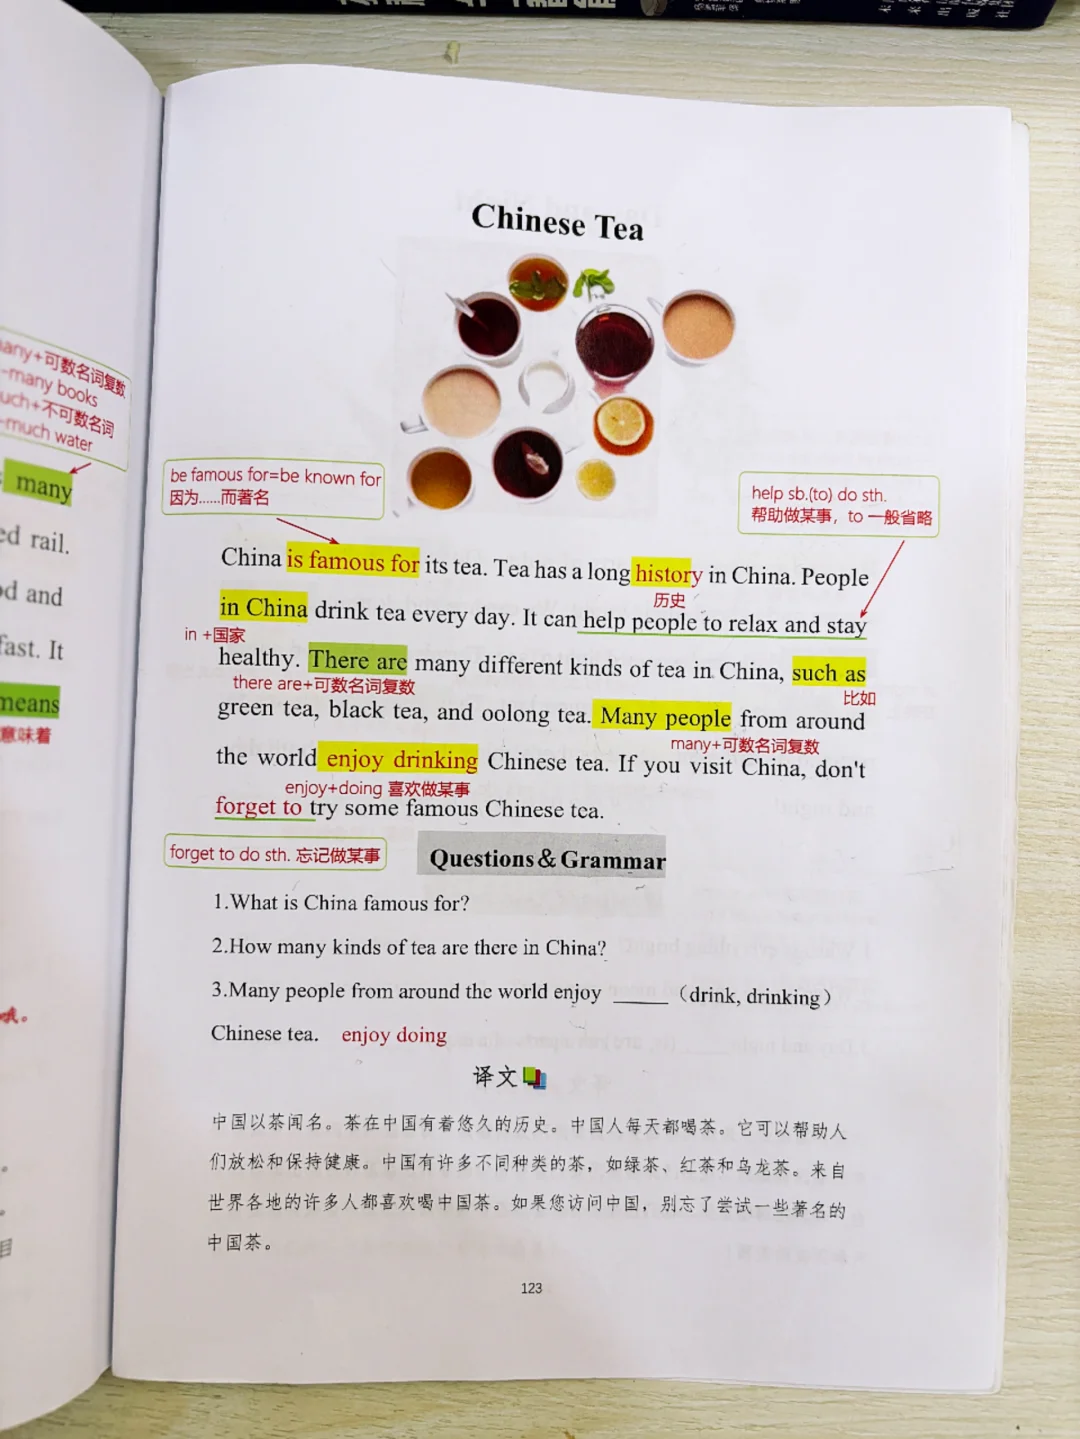 many+可数名词复数
-many books
much+不可数名词
-much water
many
ed rail.
od and
fast. It
means
意味着
哦。
Chinese Tea
be famous for=be known for
因为……而著名
help sb.(to) do sth.
帮助做某事，to 一般省略
China is famous for its tea. Tea has a long history in China. People
历史
in China drink tea every day. It can help people to relax and stay
in +国家
healthy. There are many different kinds of tea in China, such as
there are+可数名词复数
比如
green tea, black tea, and oolong tea. Many people from around
many+可数名词复数
the world enjoy drinking Chinese tea. If you visit China, don't
enjoy+doing 喜欢做某事
forget to try some famous Chinese tea.
forget to do sth. 忘记做某事
Questions&Grammar
1.What is China famous for?
2.How many kinds of tea are there in China?
3.Many people from around the world enjoy _____ （drink, drinking）
Chinese tea. enjoy doing
译文
中国以茶闻名。茶在中国有着悠久的历史。中国人每天都喝茶。它可以帮助人
们放松和保持健康。中国有许多不同种类的茶，如绿茶、红茶和乌龙茶。来自
世界各地的许多人都喜欢喝中国茶。如果您访问中国，别忘了尝试一些著名的
中国茶。
123